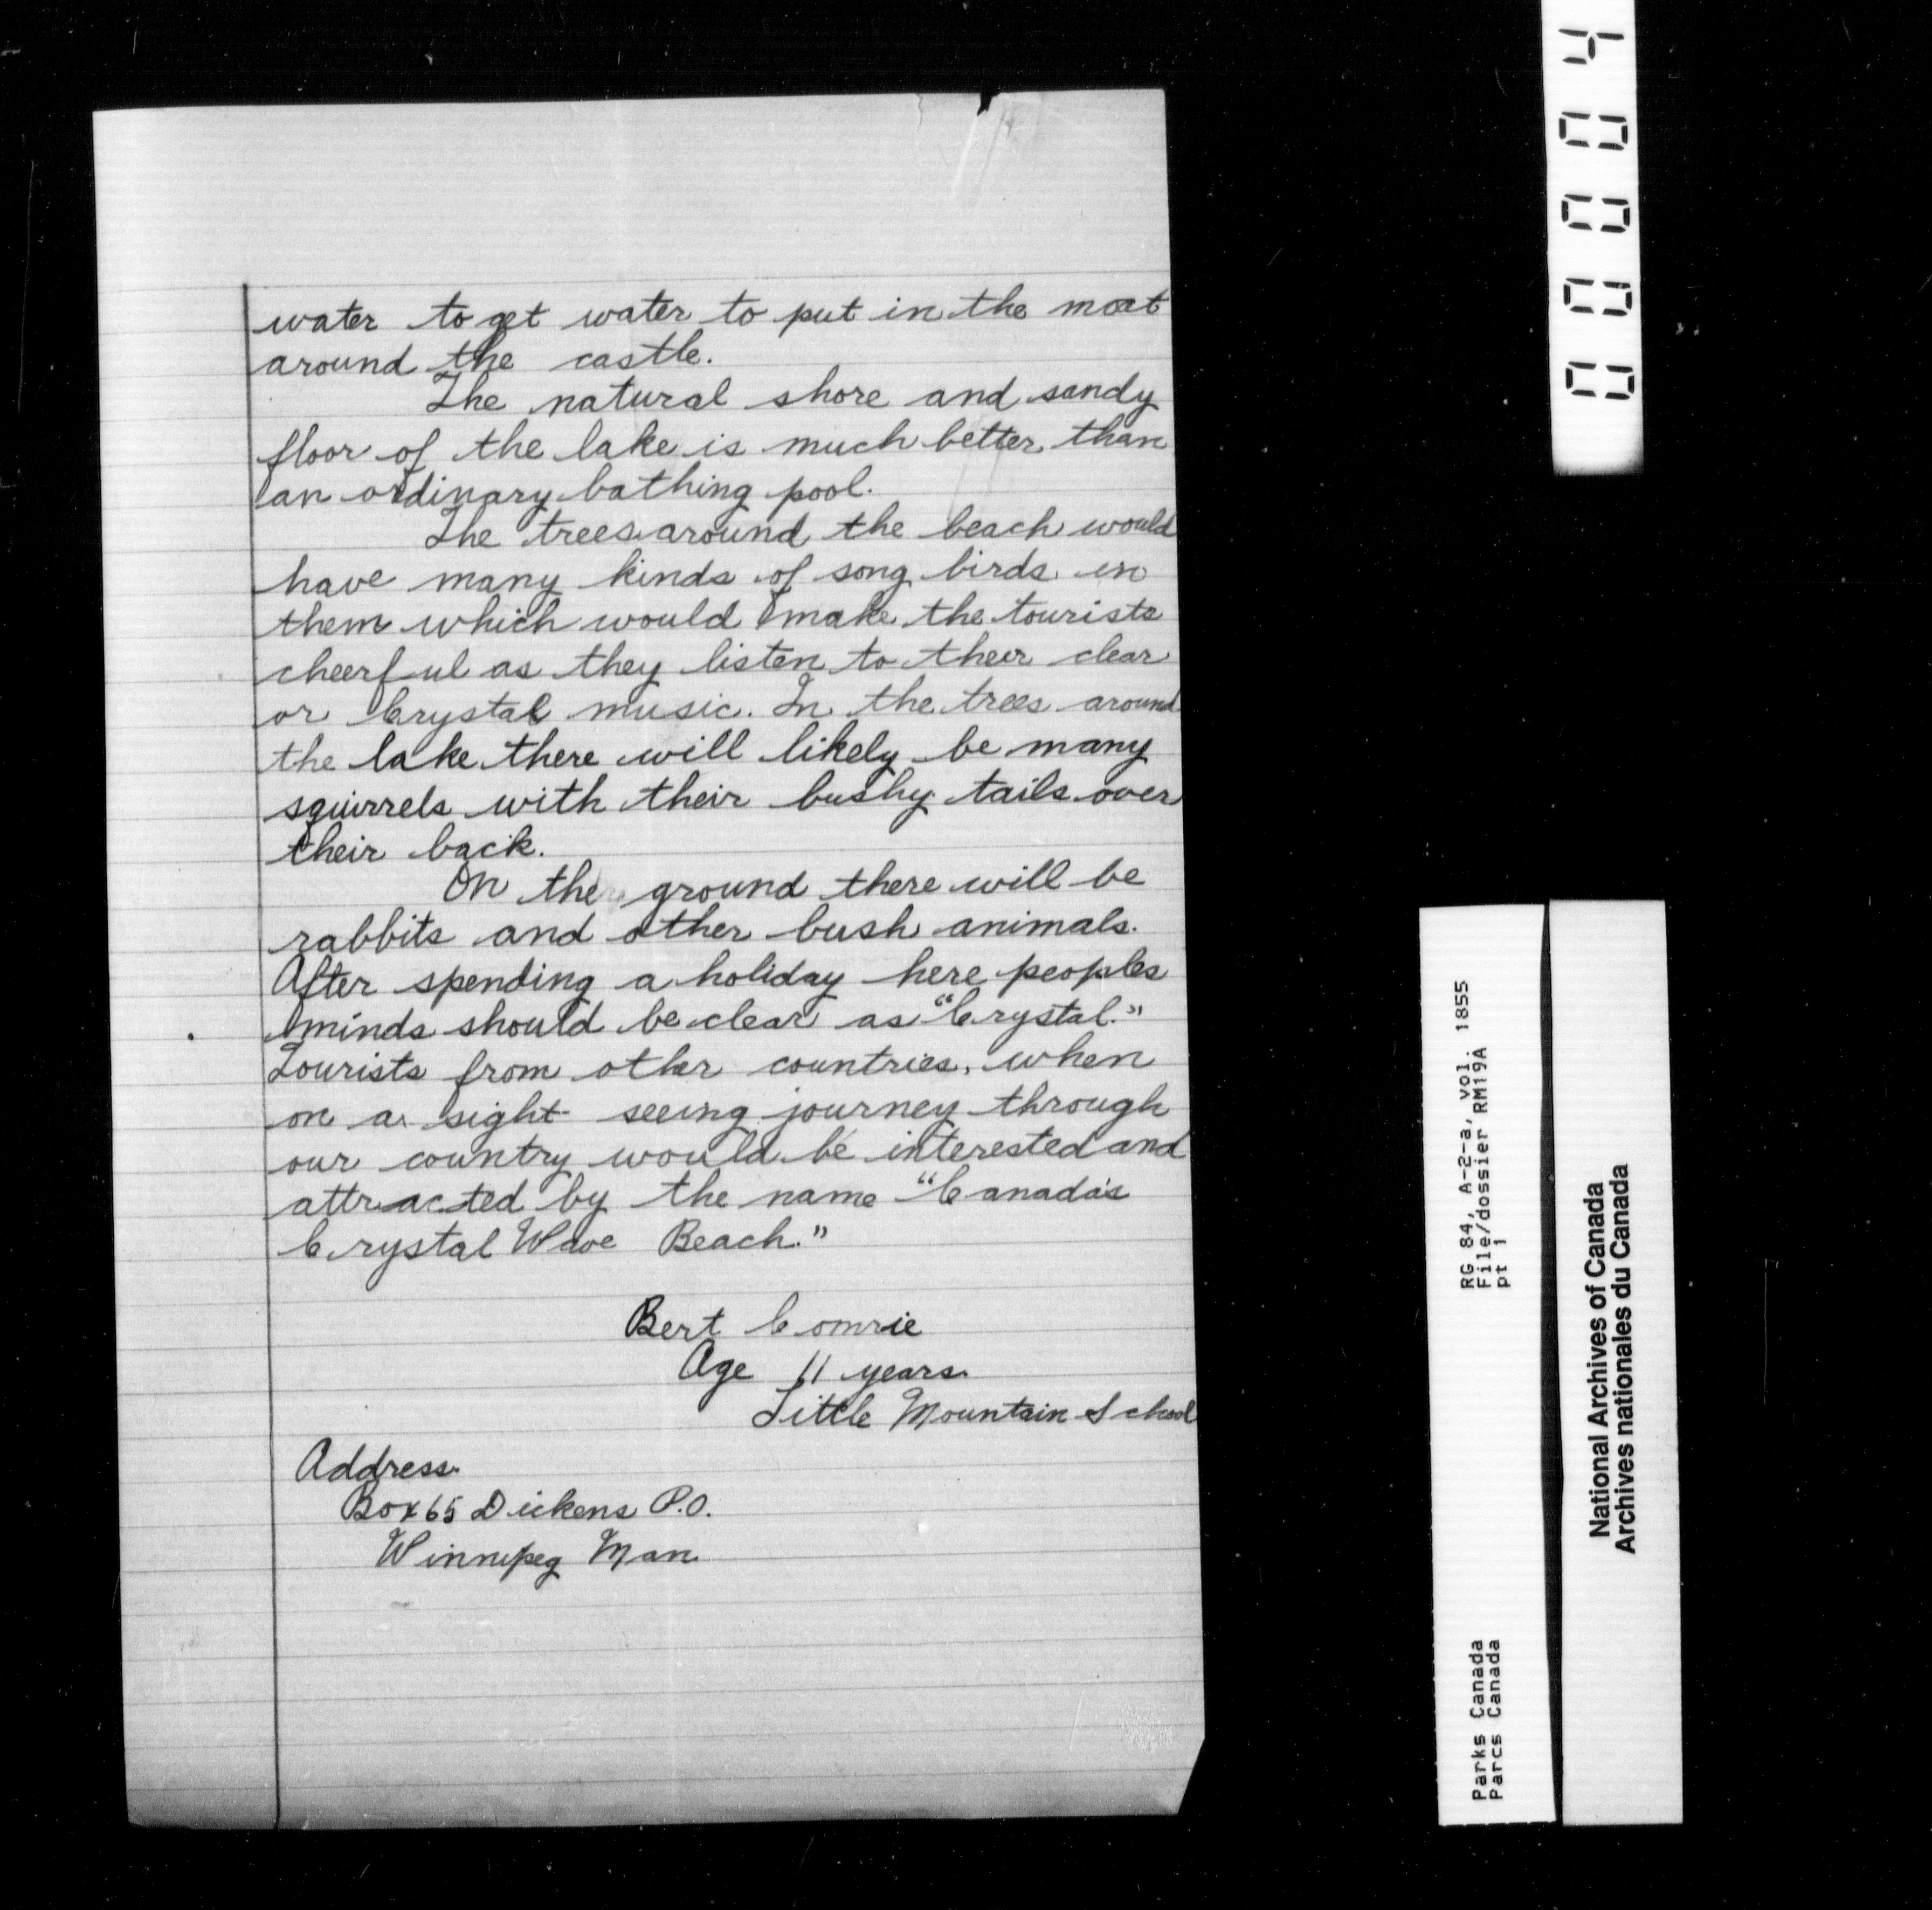 water to get water to put in the moat
around the castle.
The natural shore and sandy
floor of the lake is much better than
an ordinary bathing pool.
The trees around the beach would
have many kinds of song birds in
them which would make the tourists
cheerful as they listen to their clear
or Crystal music. In the trees around
the lake there will likely be many
squirrels with their bushy tails over
their back.
On the ground there will be
rabbits and other bush animals.
After spending a holiday here peoples
minds should be clear as "Crystal."
Tourists from other countries, when
on a sight seeing journey through
our country would be interested and
attracted by the name "Canada's
Crystal Wave Beach."
Bert Comrie
Age 11 years.
Little Mountain School
Address.
Box 65 Dickens P.O.
Winnipeg Man
00004
RG 84, A-2-a, vol. 1855
File/dossier RM19A
pt 1
Parks Canada
Parcs Canada
National Archives of Canada
Archives nationales du Canada